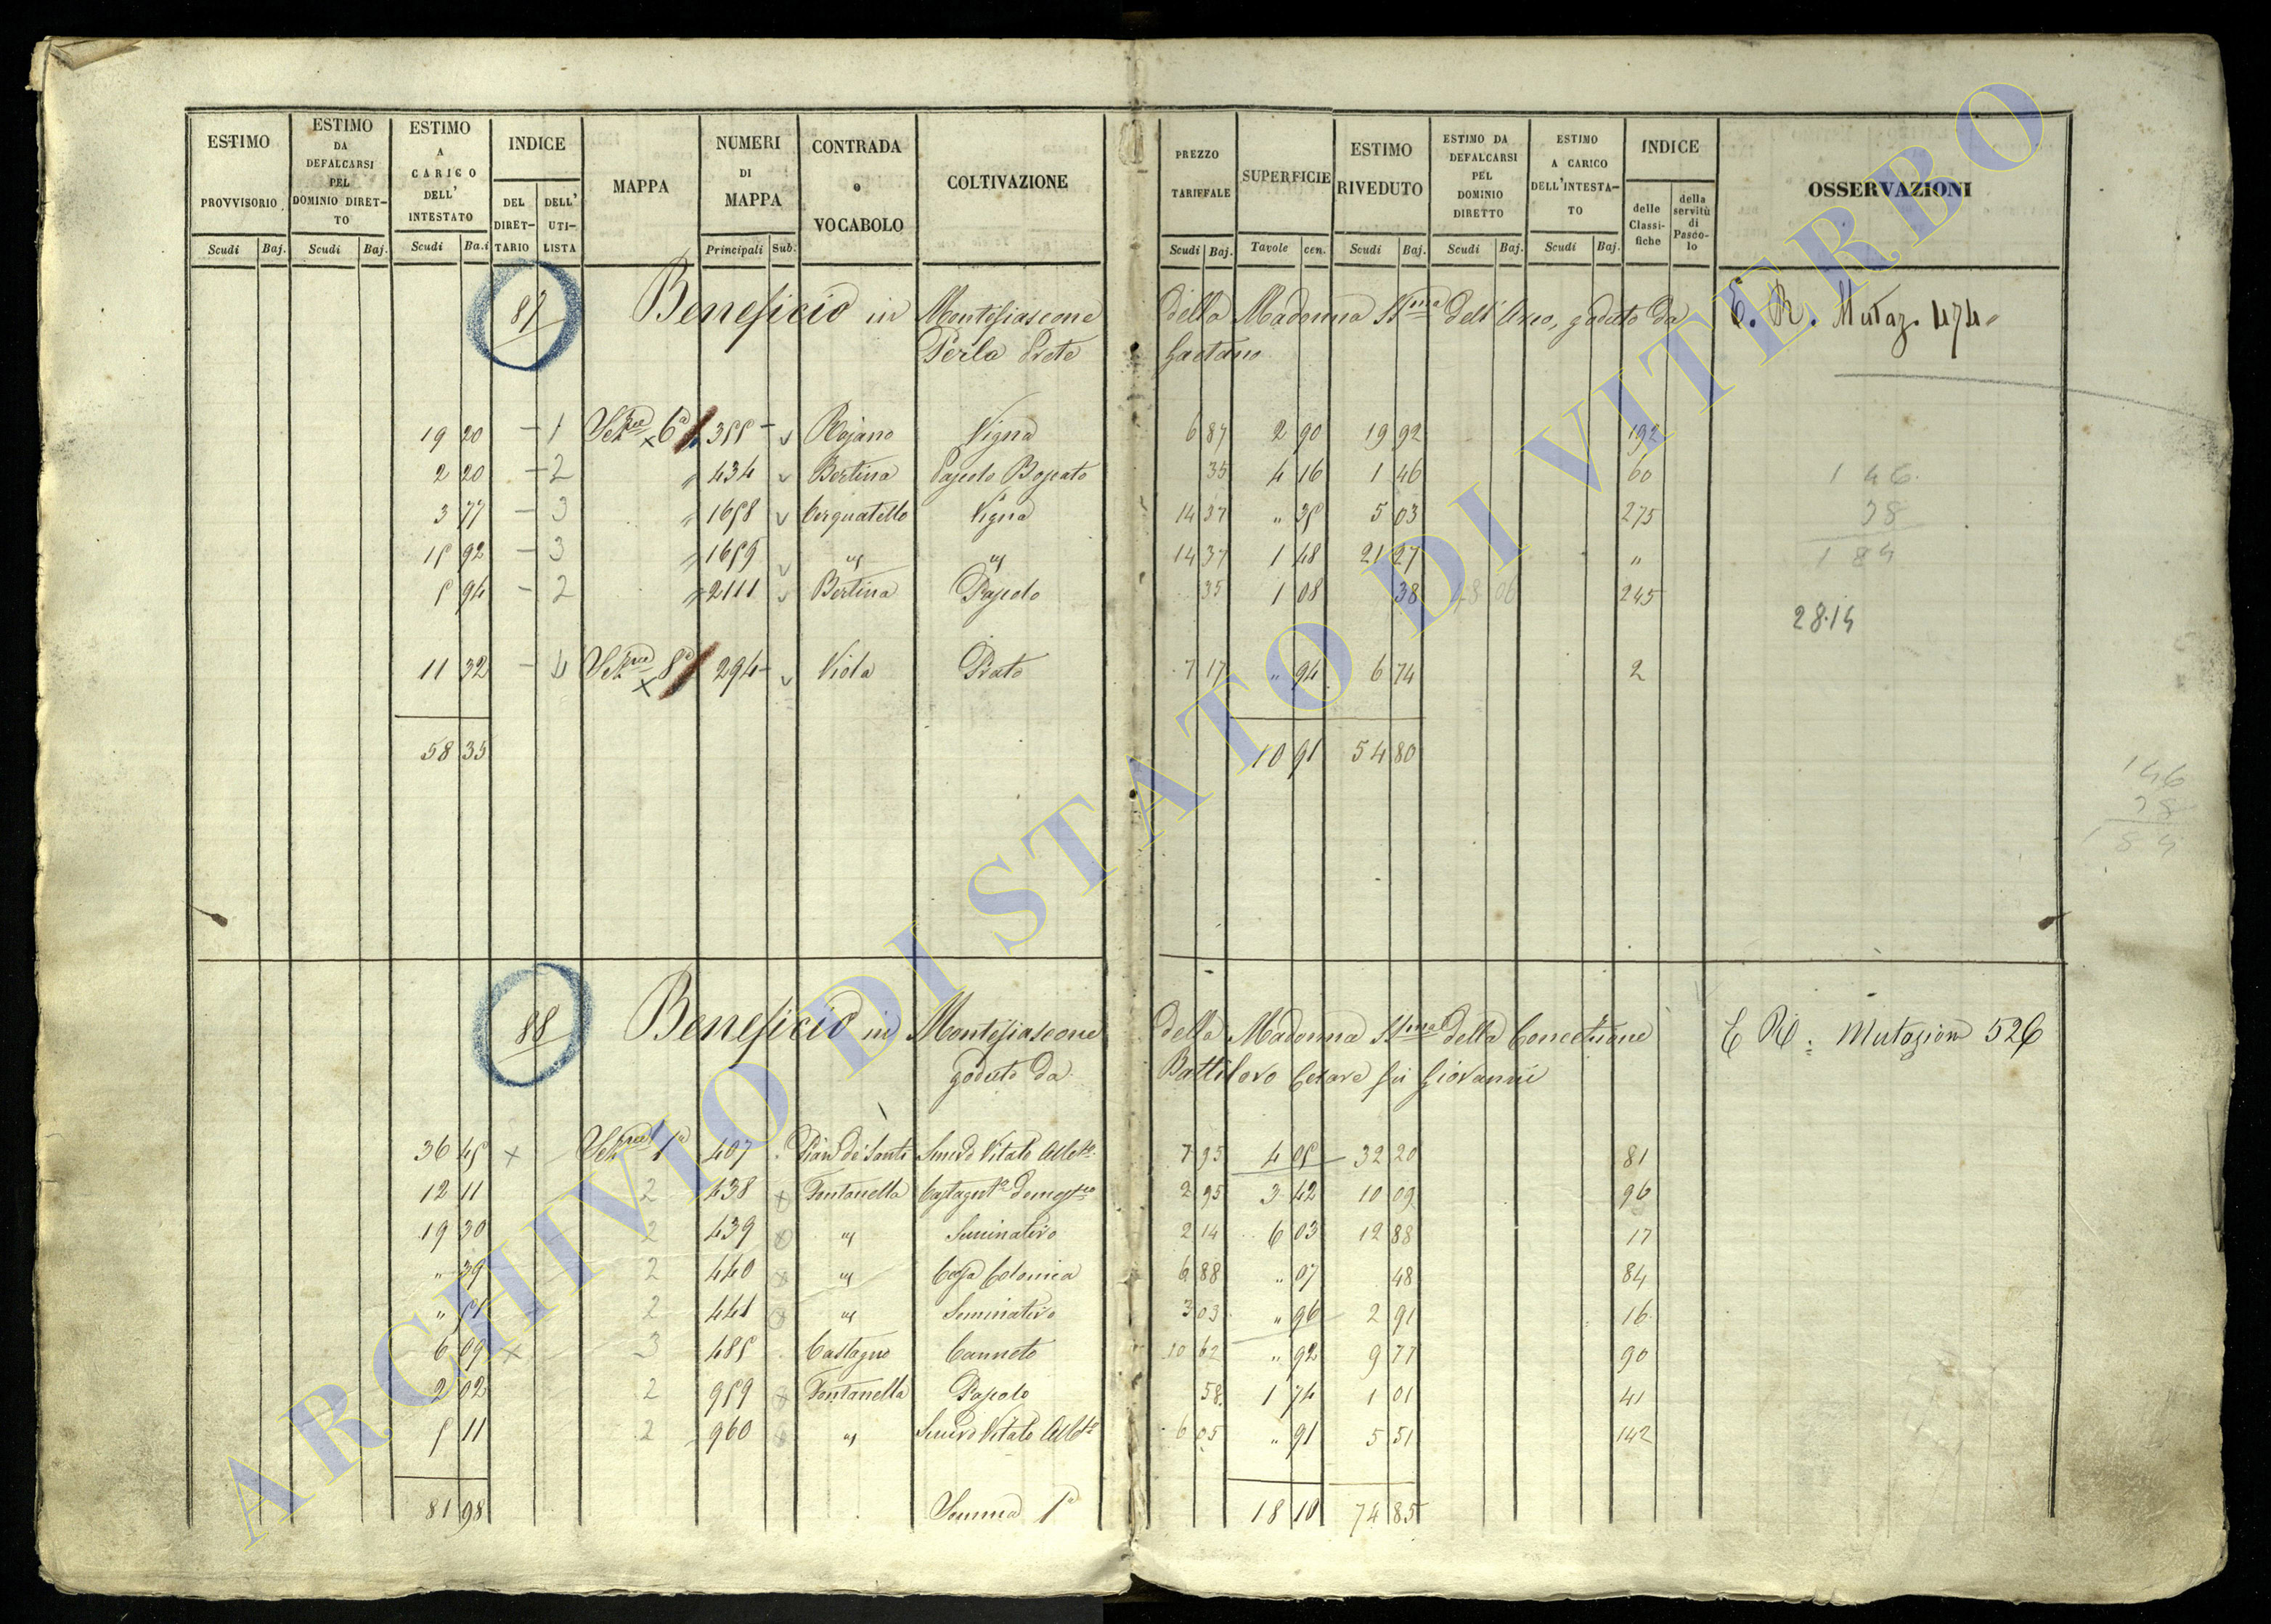 ESTIMO PROVVISORIO Scudi Baj.
ESTIMO DA DEFALCARSI PEL DOMINIO DIRETTO Scudi Baj.
ESTIMO A CARICO DELL' INTESTATO Scudi Baj
INDICE DEL DIRETTARIO DELL' UTILISTA
MAPPA
NUMERI DI MAPPA Principali Sub.
CONTRADA o VOCABOLO
COLTIVAZIONE
PREZZO TARIFFALE Scudi Baj.
SUPERFICIE Tavole cen.
ESTIMO RIVEDUTO Scudi Baj.
ESTIMO DA DEFALCARSI PEL DOMINIO DIRETTO Scudi Baj.
ESTIMO A CARICO DELL'INTESTATO Scudi Baj.
INDICE delle Classifiche della servitù di Pascolo
OSSERVAZIONI
87 Beneficio in Montefiascone della Madonna SSma dell'Arco, goduto da E. R. Mutaz. 474
Perla Prete Gaetano
19 20 - 1 Sezne 6a 355 Rojano Vigna 6 87 2 90 19 92 192
2 20 - 2 " 434 Bertina Pascolo Boscato 35 4 16 1 46 60 1 46
3 77 - 3 " 1658 Cerquatello Vigna 14 37 " 35 5 03 275 38
15 92 - 3 " 1659 " " 14 37 1 48 21 27 " 1 84
5 94 - 2 " 2111 Bertina Pascolo 35 1 08 38 245
28.14
11 32 - 4 Sezne 8a 294 Viola Prato 7 17 " 94 6 74 2
58 35 10 91 54 80
146
38
184
88 Beneficio in Montefiascone della Madonna SSma della Concezione E R: Mutazion 526
goduto da Battiloro Cesare fu Giovanni
36 45 x Sezne 1a 407 Pian de' Santi Semvo Vitato Allbto 7 95 4 05 32 20 81
12 11 2 438 x Fontanella Castagnto domestco 2 95 3 42 10 09 96
19 30 2 439 x " Seminativo 2 14 6 03 12 88 17
" 39 2 440 x " Casa Colonica 6 88 " 07 48 84
" 51 2 441 x " Seminativo 3 03 " 96 2 91 16
6 09 x 3 485 Castagno Canneto 10 62 " 92 9 77 90
2 02 2 959 x Fontanella Pascolo 58 1 74 1 01 41
5 11 2 960 x " Semvo Vitato Allbto 6 05 " 91 5 51 142
81 98 Somma 1a 18 10 74 85
ARCHIVIO DI STATO DI VITERBO